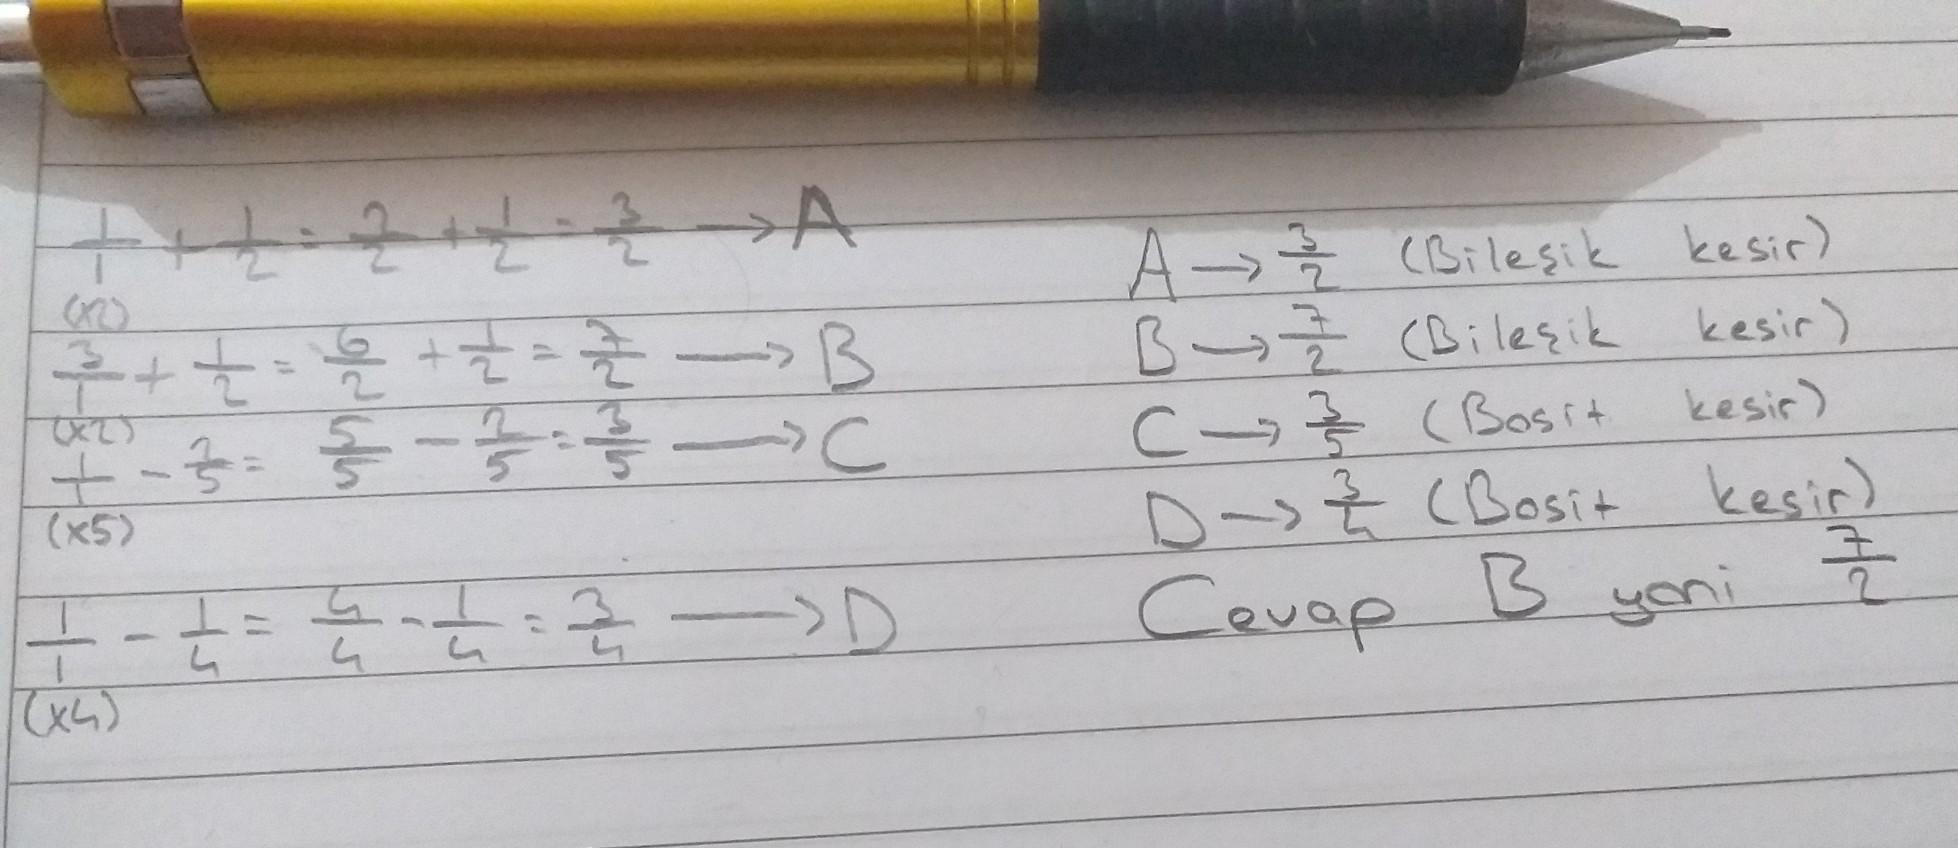 1/1 + 1/2 = 2/2 + 1/2 = 3/2 → A
(x2)
3/1 + 1/2 = 6/2 + 1/2 = 7/2 → B
(x2)
1/1 - 2/5 = 5/5 - 2/5 = 3/5 → C
(x5)
1/1 - 1/4 = 4/4 - 1/4 = 3/4 → D
(x4)
A → 3/2 (Bileşik kesir)
B → 7/2 (Bileşik kesir)
C → 3/5 (Basit kesir)
D → 3/4 (Basit kesir)
Cevap B yani 7/2